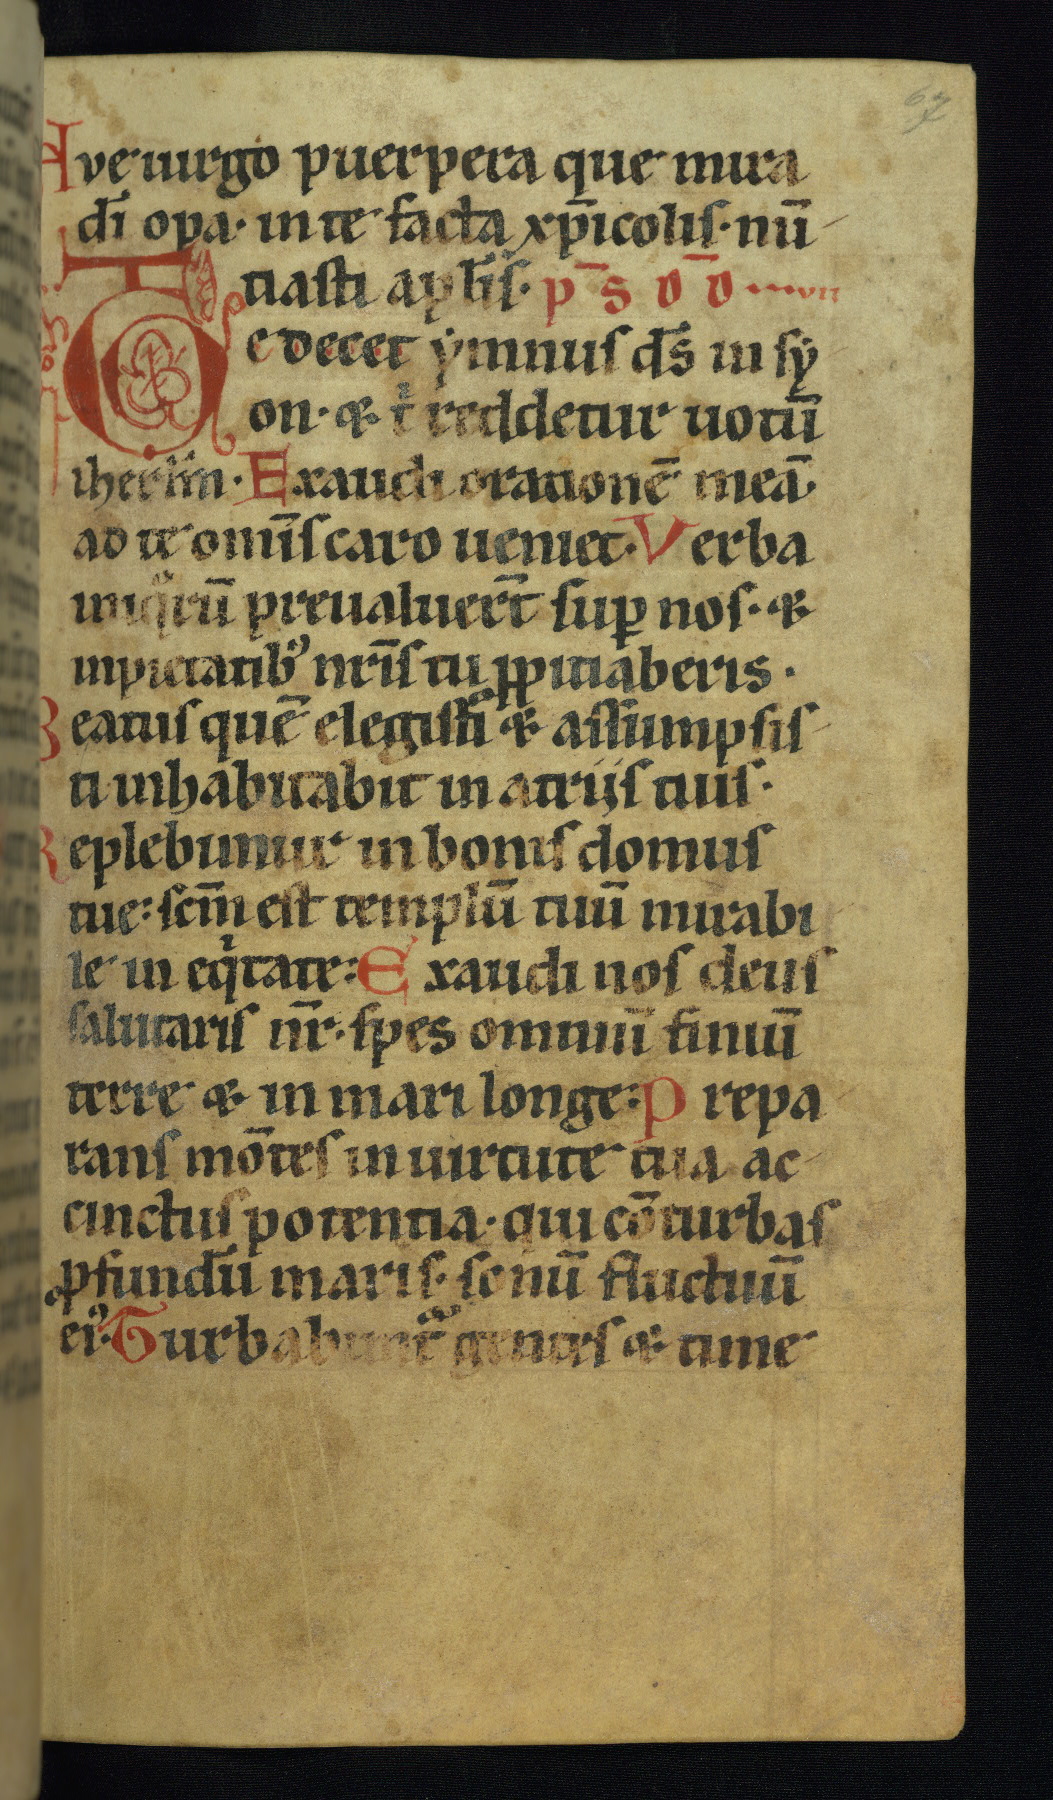 67
Ave uirgo puerpera que mira
dī opa· in te facta xp̄icolis· nū
tiasti
p̄ s d̄ d
Te decet ẏmnus ds̄ in sẏ
on· & tͥ reddetur uotū
iherl̄m· Exaudi orationē meā·
ad te omīs caro ueniet· Verba
iniqͦrū preualuer̄t sup nos· &
inpietatibꝰ nr̄is tu ꝓpitiaberis·
Beatus quē elegisti & assumpsis
ti inhabitabit in atrijs tuis·
Replebimur in bonis domus
tue: scm̄ est templū tuū mirabi
le in eqͥtate: Exaudi nos deus
salutaris nr̄· spes omniū finiū
terre & in mari longe: Prepa
rans mōtes in uirtute tua ac
cinctus potentia· qui cōturbas
ꝓfundū maris· sonū fluctuū
eiꝰ· Turbabunt᷑ gentes & time